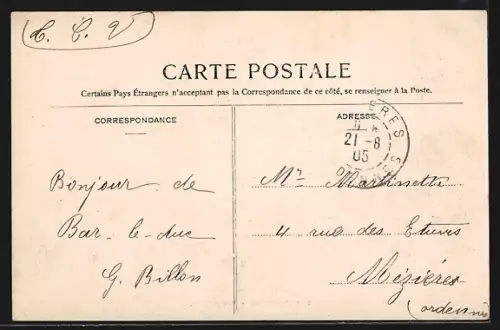 C. C. V
CARTE POSTALE
Certains Pays Étrangers n'acceptant pas la Correspondance de ce côté, se renseigner à la Poste.
CORRESPONDANCE
ADRESSE
ERES
21 -8
05
Bonjour de
Bar-le-duc
G. Billon
Mr Martinette
4 rue des
Mézières
(ardennes